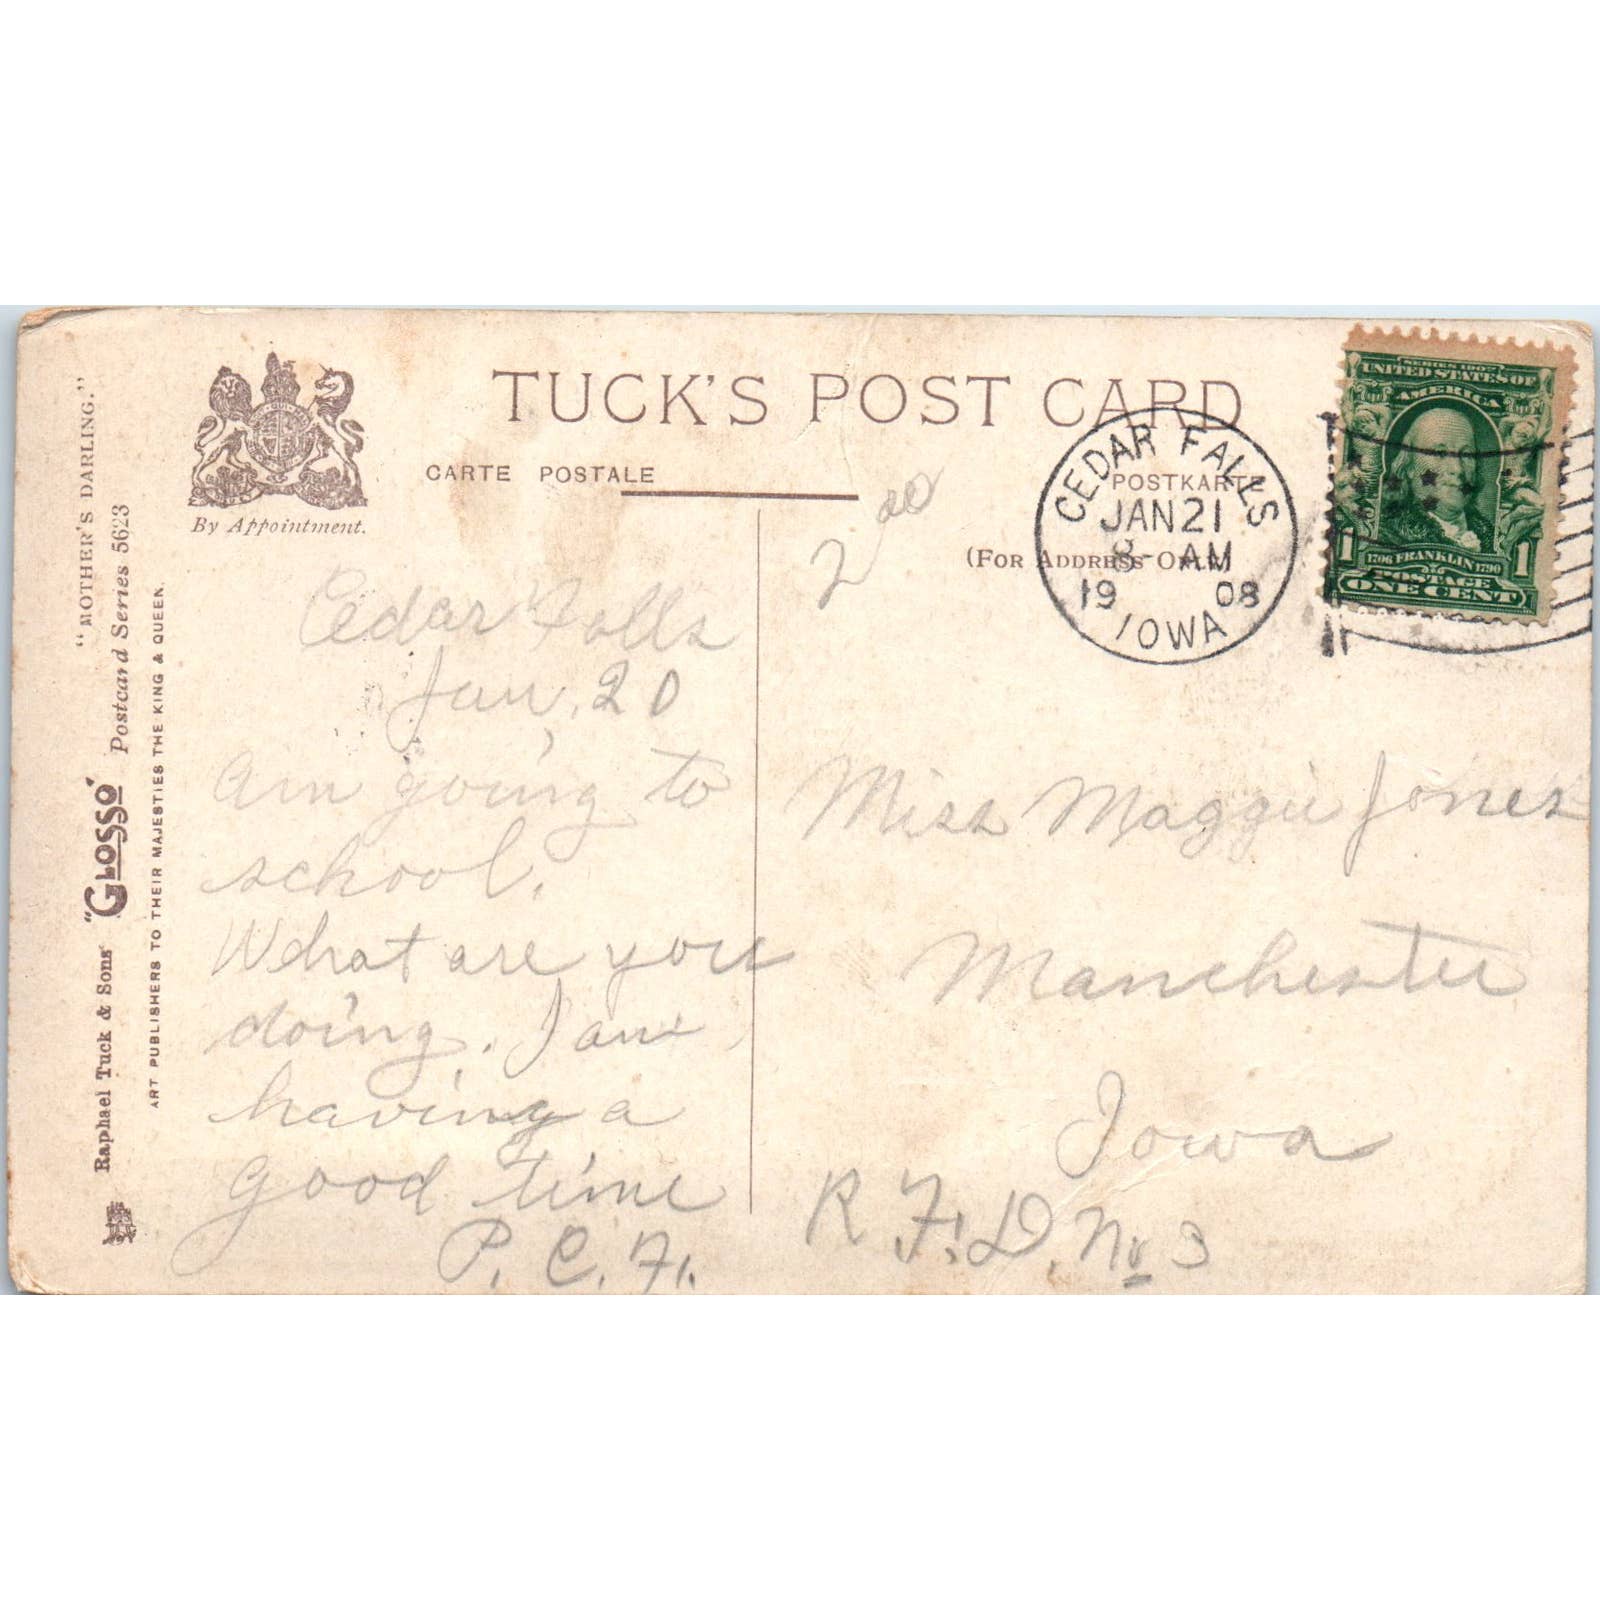 TUCK'S POST CARD
CARTE POSTALE
POSTKARTE
(FOR ADDRESS ONLY)
By Appointment.
"MOTHER'S DARLING."
Raphael Tuck & Sons' "GLOSSO" Postcard Series 5623
ART PUBLISHERS TO THEIR MAJESTIES THE KING & QUEEN.
CEDAR FALLS
JAN 21
8- AM
19 08
IOWA
SERIES 1902
UNITED STATES OF
AMERICA
1706 FRANKLIN 1790
1 POSTAGE 1
ONE CENT
2 00
Cedar Falls
Jan. 20
Am going to
school.
What are you
doing. I am
having a
good time
P. C. F.
Miss Maggie Jones
Manchester
Iowa
R. F. D. No 3